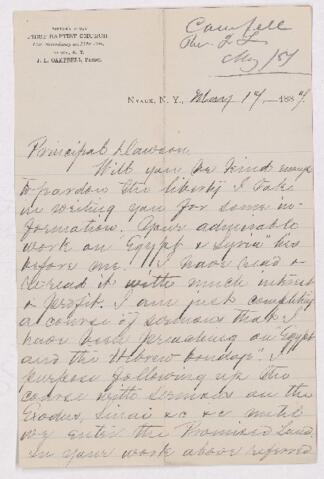 FIRST BAPTIST CHURCH
NYACK, N. Y.
J. L. CAMPBELL, Pastor.
Campbell
Rev J L
May 18/
NYACK, N. Y., May 17 1887.
Principal Dawson
Will you be kind enough
to pardon the liberty I take
in writing you for some in-
formation. Your admirable
work on "Egypt & Syria" lies
before me. I have read &
reread it with much interest
& profit. I am just completing
a course of sermons that I
have been preaching on "Egypt
and the Hebrew bondage". I
purpose following up the
course with sermons on the
Exodus, Sinai &c &c until
we enter the Promised Land.
In your work above referred